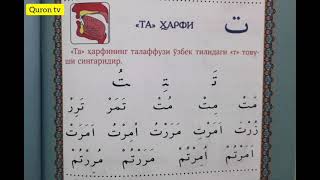 Quron tv
«ТА» ҲАРФИ ت
«Та» ҳарфининг талаффузи ўзбек тилидаги «т» товуши сингаридир.
تَ تِ تُ
مَتْ مِتْ مُتْ تَمَرْ تَرِزْ
زُرْتَ اَمَرَتْ مَرَرْتَ اُمِرْتُ اَمَرَتْ
اَمَرْتُمْ اُمِرْتُمْ مَرَرْتُمْ مُرِرْتُمْ